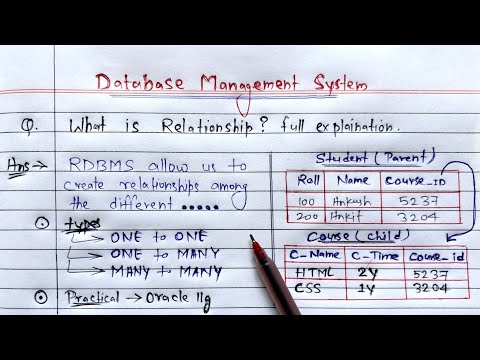 Database Management System
Q. What is Relationship? full explaination.
Ans → RDBMS allow us to
create relationships among
the different .....
types
ONE to ONE
ONE to MANY
MANY to MANY
Practical → Oracle 11g
Student (Parent)
Roll Name Course_ID
100 Ankush 5237
200 Ankit 3204
Course (child)
C_Name C_Time Course_id
HTML 2Y 5237
CSS 1Y 3204